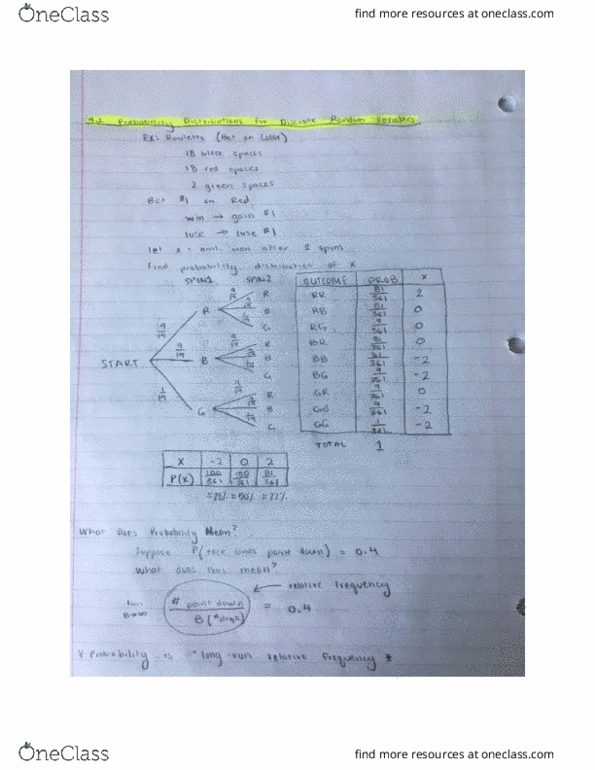 OneClass find more resources at oneclass.com
9.2 Probability Distributions for Discrete Random Variables
Ex: Roulette (Bet on Color)
18 black spaces
18 red spaces
2 green spaces
Bet $1 on Red
win → gain $1
lose → lose $1
let x = amt. won after 2 spins
Find probability distribution of x
SPIN1 SPIN2 OUTCOME PROB X
RR 81/361 2
RB 81/361 0
RG 9/361 0
BR 81/361 0
BB 81/361 -2
BG 9/361 -2
GR 9/361 0
GB 9/361 -2
GG 1/361 -2
TOTAL 1
START
9/19 R 9/19 R
9/19 B
1/19 G
9/19 B R
B
G
1/19 G 9/19 R
B
G
X -2 0 2
P(X) 100/361 180/361 81/361
=50% =22%
What Does Probability Mean?
Suppose P(tack lands point down) = 0.4
What does this mean?
relative frequency
lim # point down / B = 0.4
* Probability is "long-run relative frequency *
OneClass find more resources at oneclass.com